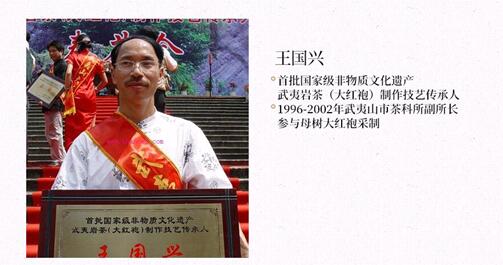 王国兴
首批国家级非物质文化遗产
武夷岩茶（大红袍）制作技艺传承人
1996-2002年武夷山市茶科所副所长
参与母树大红袍采制
首批国家级非物质文化遗产
武夷岩茶(大红袍)制作技艺传承人
王国兴